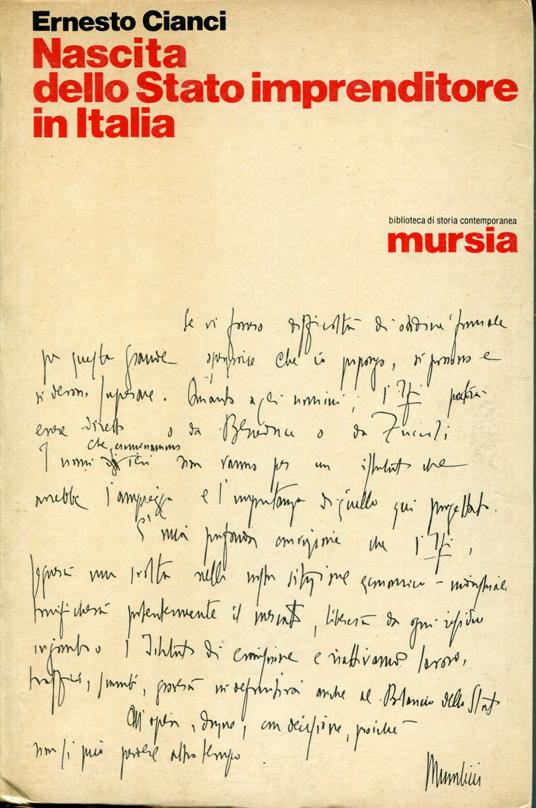 Ernesto Cianci
Nascita
dello Stato imprenditore
in Italia
biblioteca di storia contemporanea
mursia
Se vi fossero difficoltà di ordine formale
per questa grande operazione che io propongo, si possono e
si devono superare. Quanto agli uomini, l'
essere diretto o da Beneduce o da
I nomi che non vanno per un istituto che
avrebbe l'ampiezza e l'importanza di quello qui progettato.
È mia profonda convinzione che l'
segnerà una svolta nella nostra situazione economico-industriale
il mercato, libererà da ogni residuo
ingombro l'Istituto di emissione e riattivando lavoro,
traffici, scambi, gioverà in definitiva anche al Bilancio dello Stato
All'opera, dunque, con decisione, poiché
non si può perdere altro tempo